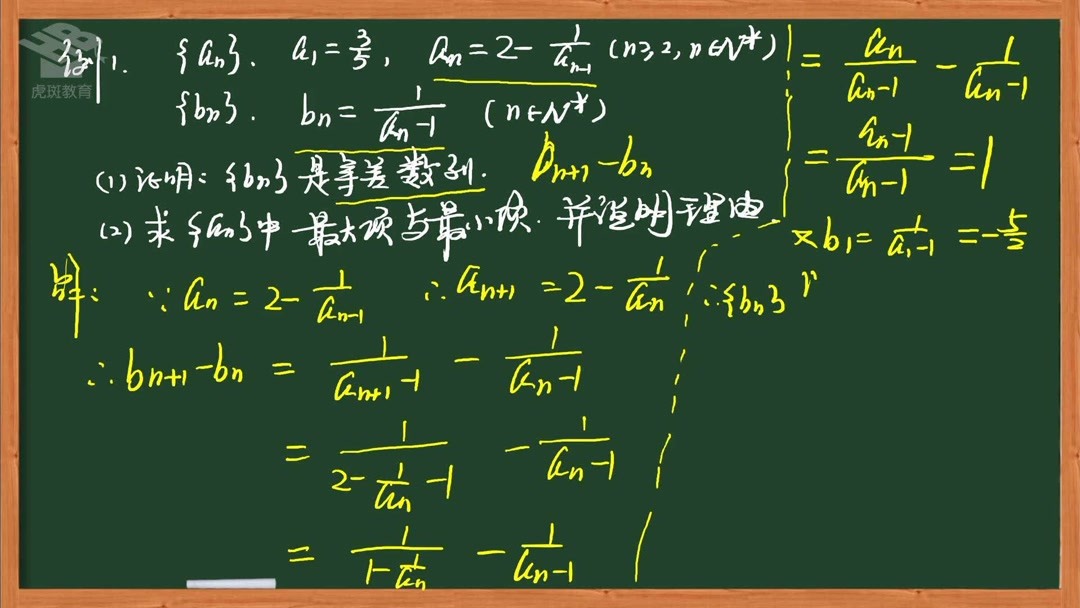 例1. {aₙ}. a₁=3/5, aₙ=2-1/aₙ₋₁ (n≥2, n∈N*)
虎斑教育
{bₙ}. bₙ=1/(aₙ-1) (n∈N*)
(1)证明:{bₙ}是等差数列. bₙ₊₁-bₙ
(2)求{aₙ}中最大项与最小项.并说明理由
解: ∵aₙ=2-1/aₙ₋₁ ∴aₙ₊₁=2-1/aₙ
∴bₙ₊₁-bₙ=1/(aₙ₊₁-1)-1/(aₙ-1)
=1/(2-1/aₙ-1)-1/(aₙ-1)
=1/(1-1/aₙ)-1/(aₙ-1)
=aₙ/(aₙ-1)-1/(aₙ-1)
=(aₙ-1)/(aₙ-1)=1
又b₁=1/(a₁-1)=-5/2
∴{bₙ}